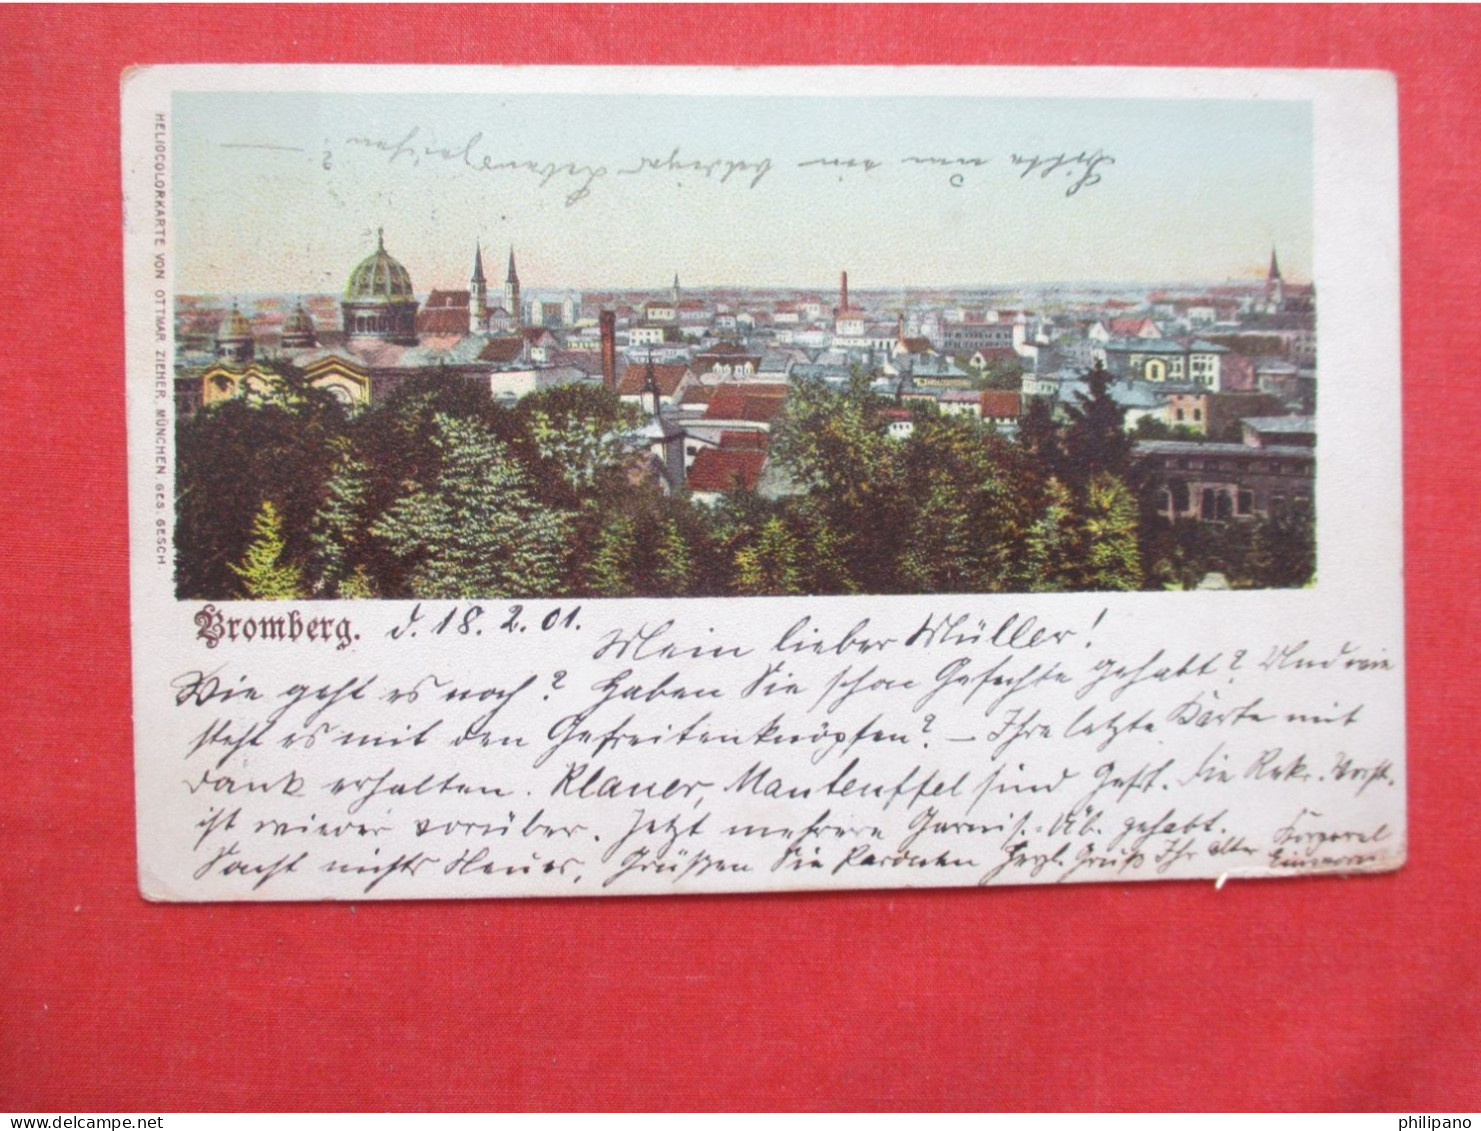 HELIOCOLORKARTE VON OTTMAR ZIEHER, MÜNCHEN, GES. GESCH.
Bitte um ein baldiges Lebenszeichen!
Bromberg. d. 18. 2. 01.
Mein lieber Müller!
Wie geht es noch? Haben Sie schon Gefechte gehabt? Und wie
steht es mit den Gefreitenknöpfen? – Ihre letzte Karte mit
Dank erhalten. Klauer, Manteuffel sind Gefr. Die Rekr. Vorst.
ist wieder vorüber. Jetzt mehrere Garnis.-Üb. gehabt.
Sonst nichts Neues. Grüßen Sie Herzl. Gruß Ihr alter
philipano